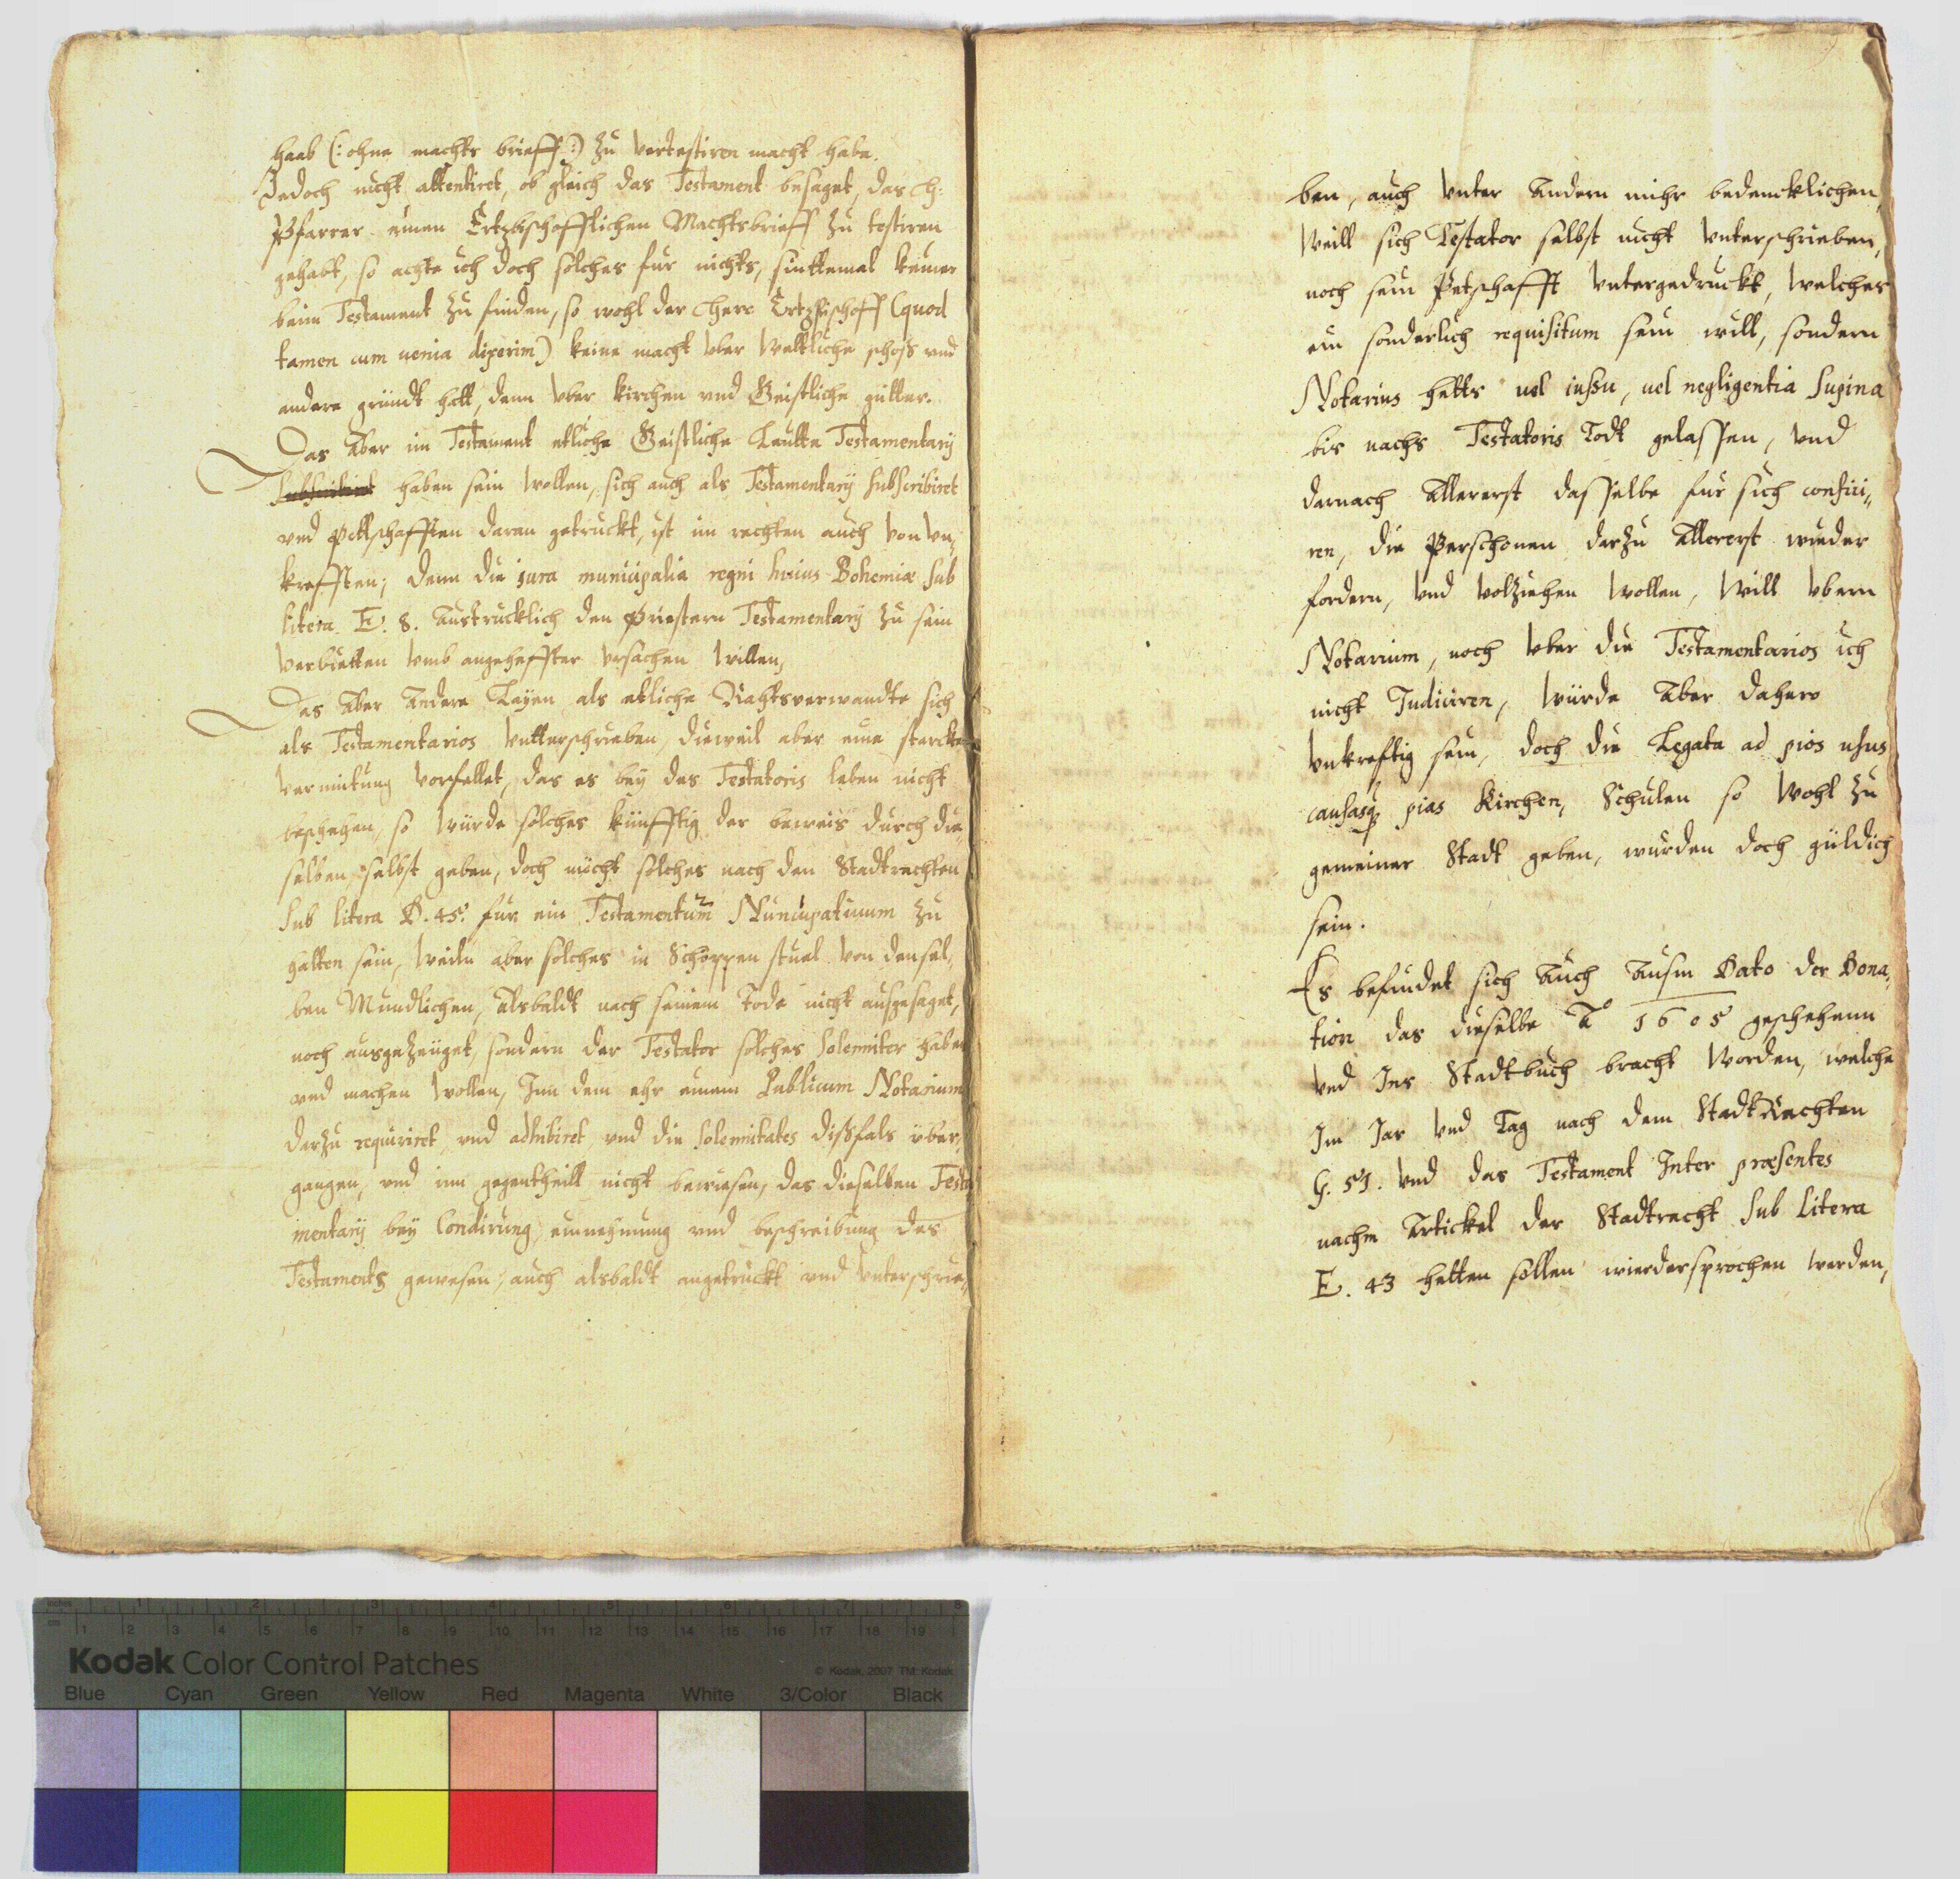 haab (: ohne machts brieff :) zu vertestiren macht habe.
Jedoch nicht attentiret, ob gleich das Testament besaget, das H:
Pfarrer einen Ertzbischofflichen Machtsbrieff zu testiren
gehabt, so achte ich doch solches fur nichts, sinttemal keiner
beim Testament zu finden, so wohl der Herr Ertzbischoff (quod
tamen cum uenia dixerim) keine macht vber Weltliche schoß vnd
andere gründt hatt, denn vber kirchen vnd Geistliche gütter.
Das Aber im Testament etliche Geistliche Leutte Testamentarÿ
haben sein Wollen, sich auch als Testamentarÿ subscribiret
vnd Pettschafften daran getruckt, ist im rechten auch von vn,
krefften; denn die jura municipalia regni huius Bohemiæ sub
litera E. 8. Austrucklich den Priestern Testamentarÿ zu sein
Verbietten vmb angeheffter vrsachen Willen,
Das Aber Andere Layen als etliche Rahtsverwandte sich
als Testamentarios Vntterschrieben, dieweil aber eine starcke
vermutung vorfellet, das es beÿ des Testatoris leben nicht
beschehen, so würde solches künfftig der beweis durch die,
selben selbst geben, doch möcht solches nach den Stadtrechten
Sub litera D. 45. fur ein Testamentum Nuncupatiuum zu
halten sein, Weiln aber solches in Schöppen stuel von densel,
ben Mundlichen, Alsbaldt nach seinem tode nicht ausgesaget,
noch ausgezeuget, sondern der Testator solches solenniter haben
vnd machen Wollen, Inn dem ehr einem Publicum Notarium
darzu requiriret, vnd adhibiret, vnd die solennitates dißfals über,
gangen, vnd im gegentheill nicht bewiesen, das dieselben Testa
mentarÿ beÿ Condirung, einnehmung vnd beschreibung des
Testaments gewesen, auch alsbaldt angetruckt vnd Vnterschrie,
ben, auch Vnter Andern mihr bedencklichen,
Weill sich Testator selbst nicht Vnterschrieben,
noch sein Petschafft Vntergedruckt, Welches
ein sonderlich requisitum sein will, sondern
Notarius hetts uel iussu, uel negligentia supina
bis nachs Testatoris Todt gelassen, Vnd
darnach Allererst dasselbe fur sich confici,
ren, die Perschonen darzu Allererst wieder
fordern, Vnd Volziehen Wollen, Will Vbern
Notarium, noch Vber die Testamentarios ich
nicht Judiciren, Würde Aber dahero
Vnkrefftig sein, doch die Legata ad pios usus
causasq pias Kirchen, Schulen so Wohl zu
gemeiner Stadt geben, wurden doch güldich
sein.
Es befindet sich Auch Ausm Dato der Dona,
tion das dieselbe Ao 1605 geschehenn
Vnd Ins Stadtbuch bracht Worden, welche
Im Jar Vnd Tag nach dem Stadt Rechten
G. 51. Vnd das Testament Inter præsentes
nachm Artickel der Stadtrecht sub Litera
E. 43 hetten sollen wiedersprochen Werden,
Kodak Color Control Patches
© Kodak, 2007 TM: Kodak
Blue Cyan Green Yellow Red Magenta White 3/Color Black